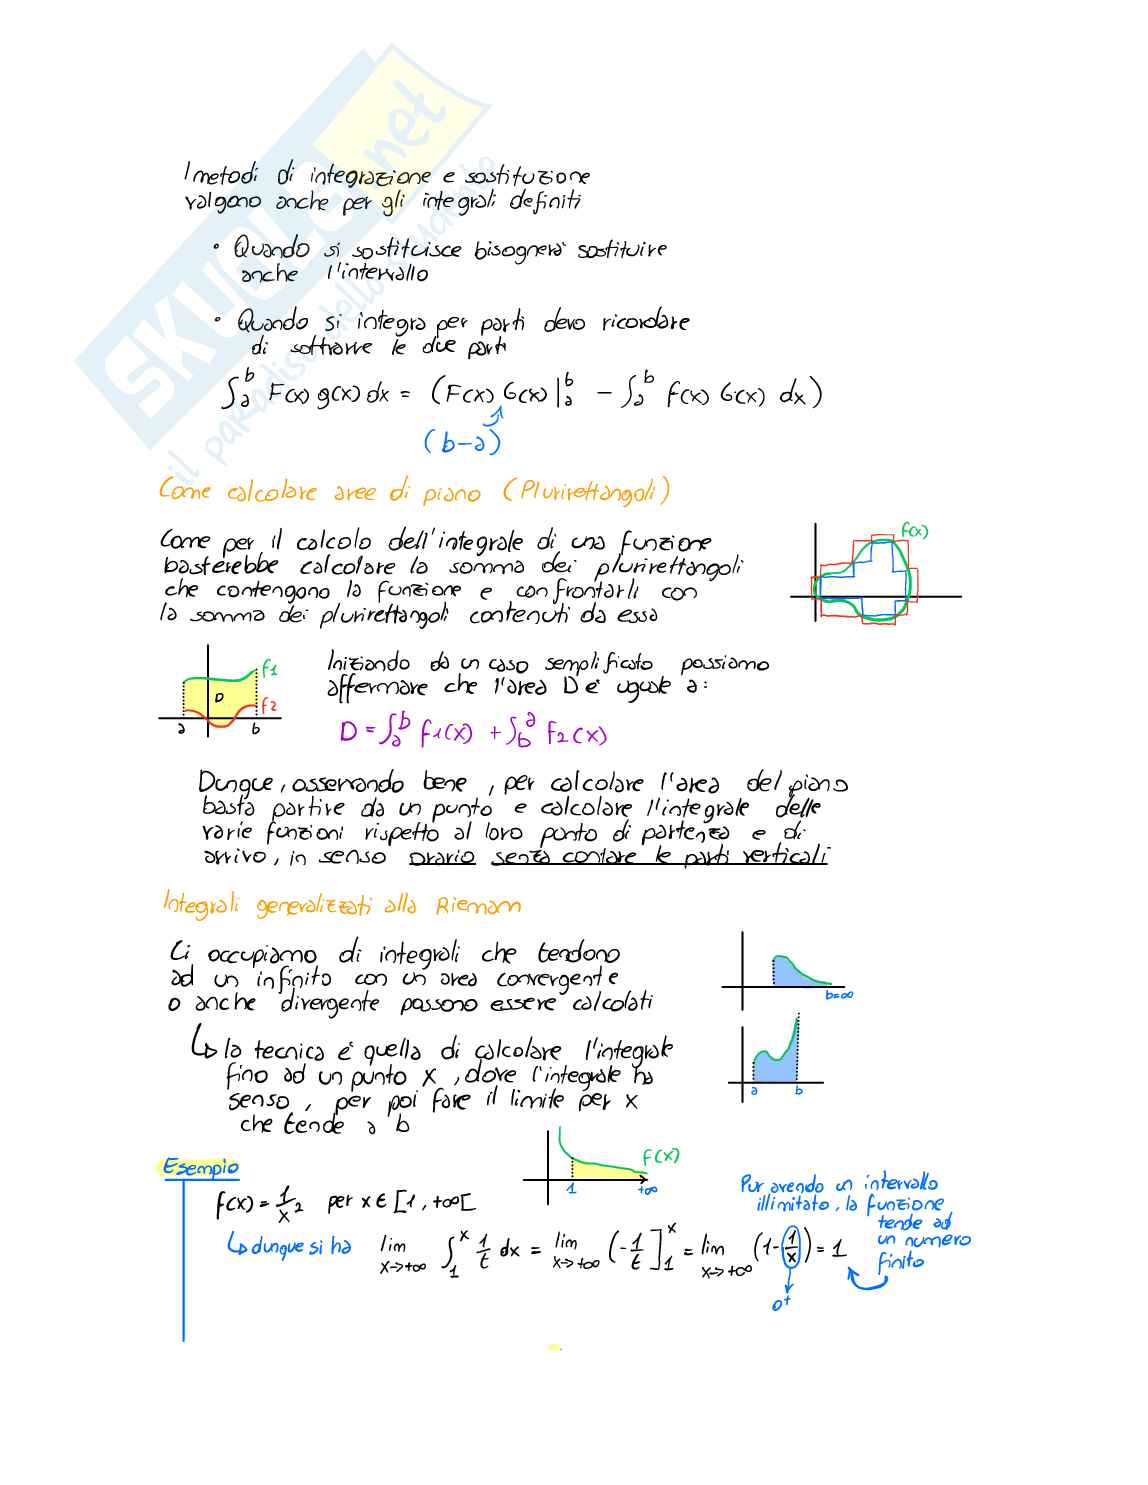 SKUOLA.net
il paradiso dello studente
I metodi di integrazione e sostituzione
valgono anche per gli integrali definiti
• Quando si sostituisce bisognerà sostituire
anche l'intervallo
• Quando si integra per parti devo ricordare
di sottrarre le due parti
∫ₐᵇ F(x) g(x) dx = (F(x) G(x) |ₐᵇ − ∫ₐᵇ f(x) G(x) dx)
(b-a)
Come calcolare aree di piano (Plurirettangoli)
Come per il calcolo dell'integrale di una funzione
basterebbe calcolare la somma dei plurirettangoli
che contengono la funzione e confrontarli con
la somma dei plurirettangoli contenuti da essa
f(x)
f1
D
f2
a
b
Iniziando da un caso semplificato possiamo
affermare che l'area D è uguale a:
D = ∫ₐᵇ f1(x) + ∫_b^a F2(x)
Dunque, osservando bene, per calcolare l'area del piano
basta partire da un punto e calcolare l'integrale delle
varie funzioni rispetto al loro punto di partenza e di
arrivo, in senso orario senza contare le parti verticali
Integrali generalizzati alla Riemann
Ci occupiamo di integrali che tendono
ad un infinito con un area convergente
o anche divergente possono essere calcolati
b=∞
↳ la tecnica è quella di calcolare l'integrale
fino ad un punto x, dove l'integrale ha
senso, per poi fare il limite per x
che tende a b
a
b
Esempio
f(x)
1
+∞
f(x) = 1/x² per x ∈ [1, +∞[
Pur avendo un intervallo
illimitato, la funzione
tende ad
un numero
finito
↳ dunque si ha lim x→+∞ ∫₁ˣ 1/t dx = lim x→+∞ (-1/t]₁ˣ = lim x→+∞ (1-1/x) = 1
0⁺